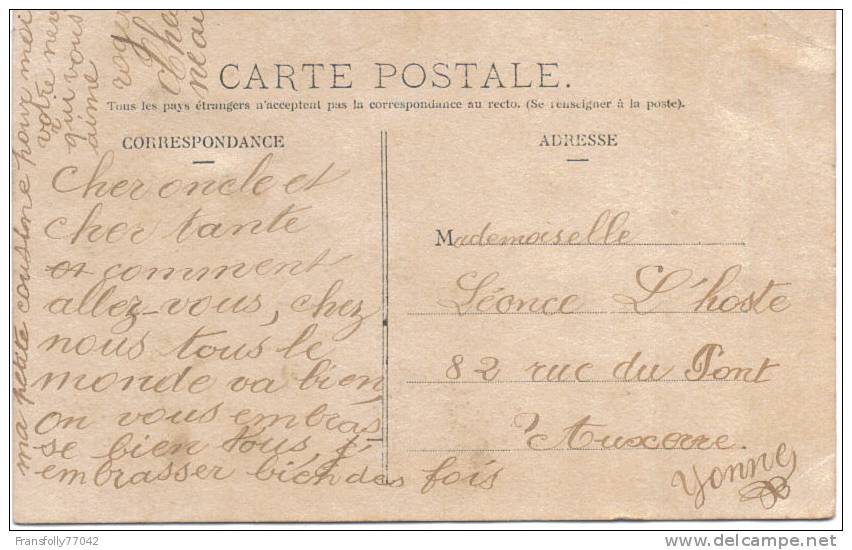 CARTE POSTALE.
Tous les pays étrangers n'acceptent pas la correspondance au recto. (Se renseigner à la poste).
CORRESPONDANCE
Cher oncle et
cher tante
et comment
allez-vous, chez
nous tous le
monde va bien
on vous embras
se bien tous,
embrasser bien des fois
ma petite cousine pour moi
votre nev
qui vous
aime
roger
ADRESSE
Mademoiselle
Léonce L'hoste
82 rue du Pont
Auxerre.
Yonne
Fransfolly77042
www.delcampe.net